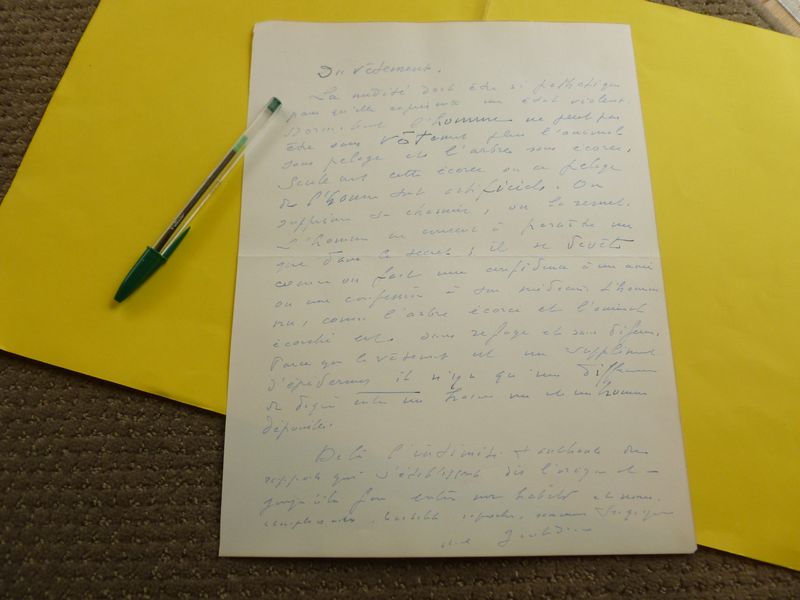 Du vêtement.
La nudité doit être si pathétique
pour qu'elle exprime un état violent.
l'homme ne peut pas
être sans vêtement plus l'animal
sans pelage et l'arbre sans écorce.
Seulement cette écorce ou ce pelage
de l'homme sont artificiels. On
supprime sa chemise, on la remet.
L'homme ne consent à paraître nu
que dans le secret ; il se dévêt
comme on fait une confidence à un ami
ou une confession à son médecin. L'homme
nu, comme l'arbre écorcé et l'animal
écorché est sans refuge et sans défense.
Parce que le vêtement est un supplément
d'épiderme, il n'y a qu'une différence
de degré entre un homme nu et un homme
De là l'intimité touchante des
rapports qui s'établissent dès l'origine et
jusqu'à la fin entre nos habits et nous.